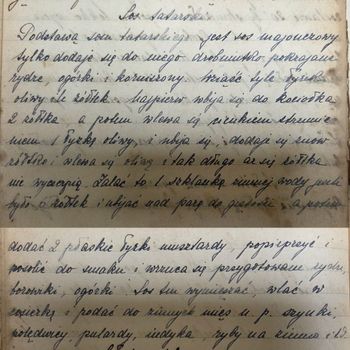 Sos tatarski
Podstawą sosu tatarskiego jest sos majonezowy
tylko dodaje się do niego drobniutko pokrajane
rydze ogórki i korniszony. Wziąść tyle łyżek
oliwy ile żółtek. Najpierw wbija się do kociołka
2 żółtka a potem wlewa się cienkim strumie
niem 1 łyżkę oliwy, i ubija się, dodaje się znów
żółtko i wlewa się oliwę i tak długo aż się żółtka
nie wyczerpią. Zalać to 1 szklanką zimnej wody jeśli
było żółtek i ubijać nad parą do gęstości, a potem
dodać 2 płaskie łyżki musztardy, popieprzyć i
posolić do smaku i wrzuca się przygotowane rydze,
borowiki, ogórki. Sos ten wymieszać, wlać w
sosierkę i podać do zimnych mięs n. p. szynki,
polędwicy, pulardy, indyka, ryby na zimno i t.d.